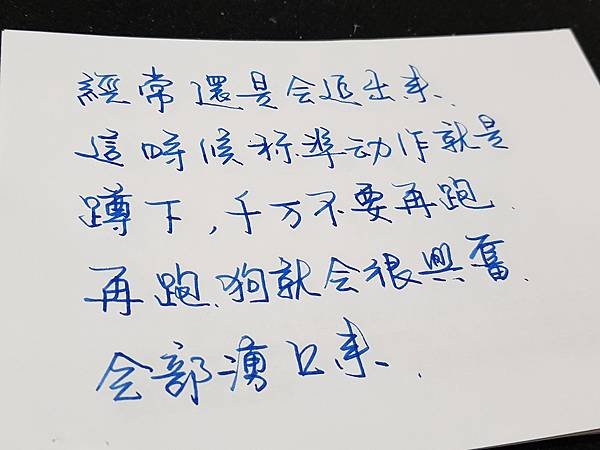 經常還是会追出来.
這時候标準动作就是
蹲下,千万不要再跑.
再跑.狗就会很興奮.
全部湧上来.